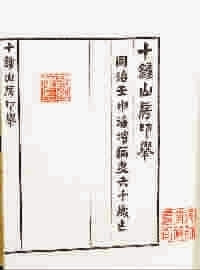 十鐘山房印舉
同治壬申海濱病史六十歲
十鐘山房印舉